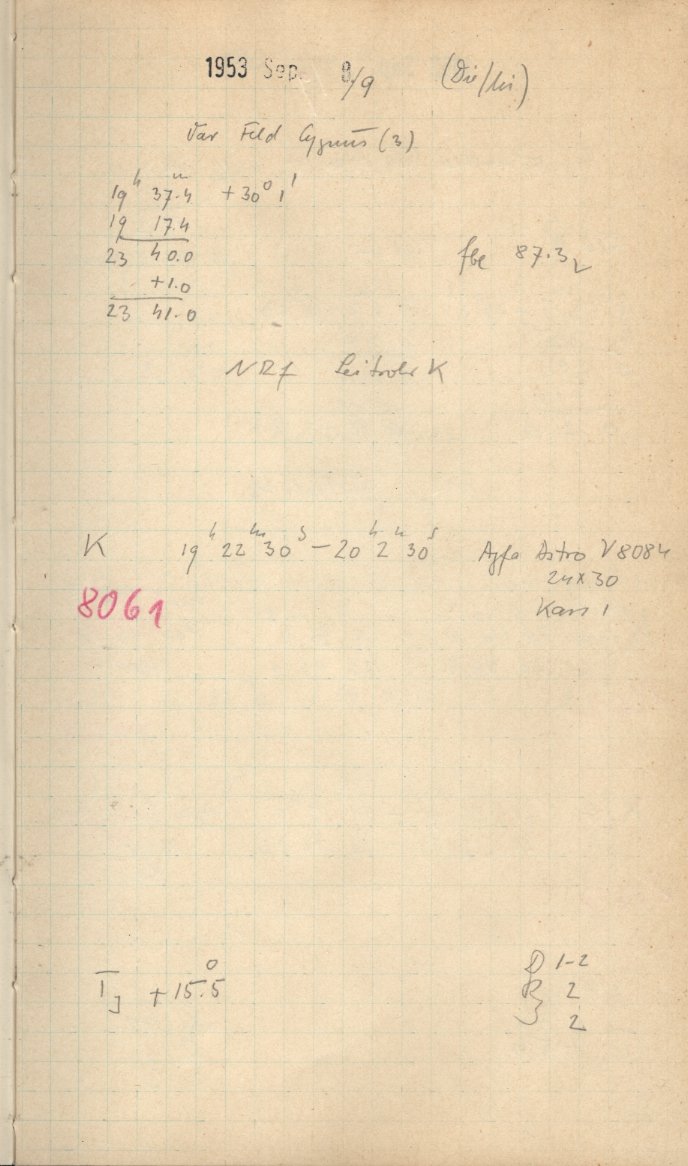 1953 Sep. 8/9 (Die/Mi)
Var Feld Cygnus (3)
19h 37.4m +30° 1'
19 17.4
23 40.0
fbe 87.32
+1.0
23 41.0
NRf Leitrohr K
K 19h 22m 30s – 20h 2m 30s Agfa Astro V8084
24x30
8061
Kass 1
D 1-2
TJ +15.5°
R 2
J 2